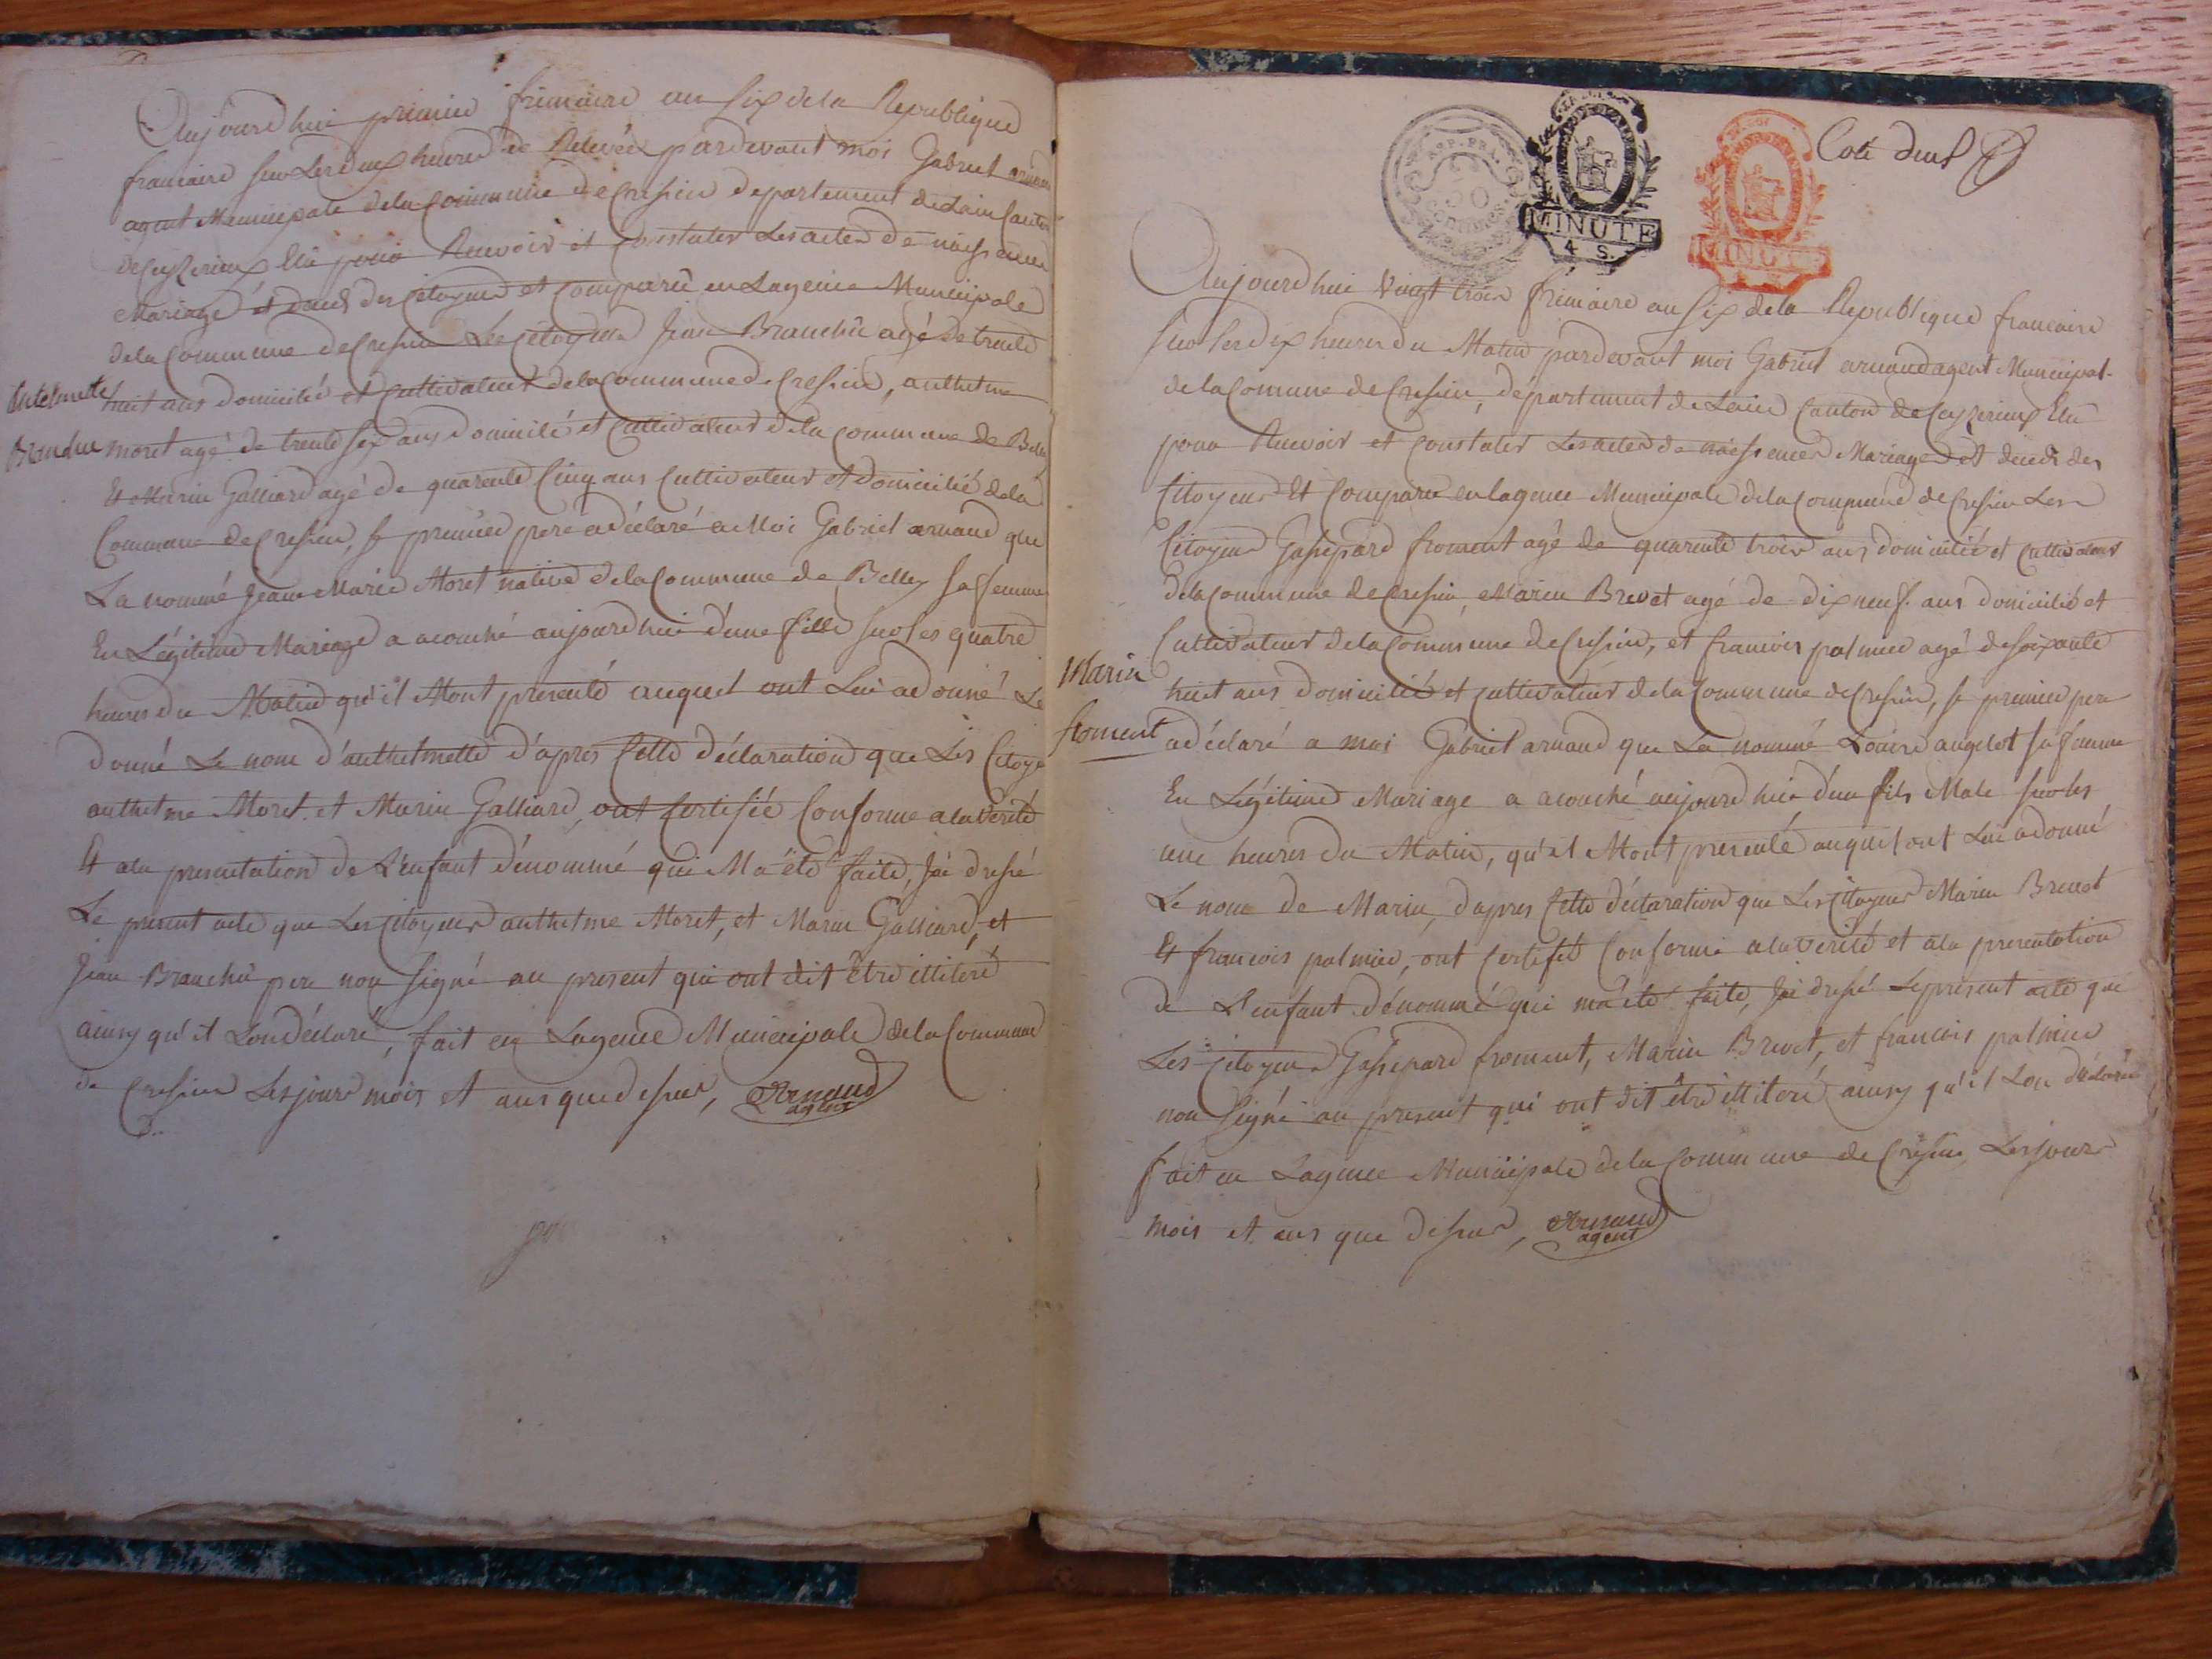 Aujourdhui premier frimaire an six dela Republique
francaise sur Les deux heures de Relevée pardevant moi Gabriel arnaud
agent Municipale dela Commune de Cresieu departement de Lain Canton
de Ceyzerieux Elu pour Recevoir et Constater Les actes de naissances
Mariage et deces des Citoyens et Comparu en Lagence Municipale
dela Commune de Cresieu Les Citoyens Jean Branchü agé de trente
huit ans domicilié et Cultivateur dela Commune de Cresieu, anthelme
Antelmette
Branchu
moret agé de trente six ans domicilé et Cultivateur dela Commune de Belley
Et Marin Galliard agé de quarente Cinq ans Cultivateur et domicilié dela
Commune de Cresieu, le premier pere a déclaré a Moi Gabriel arnaud que
La nommé Jeane Marie Moret native dela Commune de Belley sa femme
En Légitime Mariage a acouché aujourdhui d'une fille sur les quatre
heures du Matin qu'il Mont presenté auquel ont Lui a donné Le
donné Le nom d'anthelmette d'apres Cette déclaration que Les Citoye
anthelme Moret et Marin Galliard, ont Certifié Conforme a la Vérité
Et a la presentation de L'enfant dénommé qui M'a été faite, J'ai dressé
Le present acte que Les Citoyens anthelme Moret, et Marin Galliard, et
Jean Branchü pere non signé au present qui ont dit être illiteré
ainsy qu'il Lon déclaré, fait en Lagence Municipale dela Commune
de Cresieu Les jours mois et ans que dessus, Arnaud
agent
Coté deux
REP. FRA.
50
MINUTE
4 S.
MINUTE
Aujourdhui Vingt trois frimaire an six dela Republique francaise
sur Les dix heures du Matin pardevant moi Gabriel arnaud agent Municipal
dela Comune de Cresieu, département de Lain Canton de Ceyzerieux Elu
pour Recevoir et Constater Les actes de naissences Mariages et décés des
Citoyens Et Comparu en lagence Municipale dela Commune de Cresieu Les
Citoyens Gaspard froment agé de quarente trois ans domicilié et Cultivateur
dela Commune de Cresieu, Marin Brevet agé de dix neuf ans domicilié et
Cultivateur dela Commune de Cresieu, et francois palmier agé de soixante
Marin
froment
huit ans domicilié et Cultivateur dela Commune de Cresieu, le premier pere
a déclaré a moi Gabriel arnaud que La nommé Louise angelot sa femme
En Légitime Mariage a acouché aujourdhui d'un fils Male sur les
une heures du Matin, qu'il Mont presenté auquel ont Lui a donné
Le nom de Marin, d'apres Cette déclaration que Les Citoyens Marin Brevet
Et francois palmier, ont Certifié Conforme a la Vérité et a la presentation
de L'enfant dénommé qui m'a été faite, J'ai dressé Le présent acte que
Les Citoyens Gaspard froment, Marin Brevet, et francois palmier
non signé au present qui ont dit être illiteré ainsy qu'il Lon déclaré
fait en Lagence Municipale dela Commune de Cresieu Les jours
mois et ans que dessus, Arnaud
agent